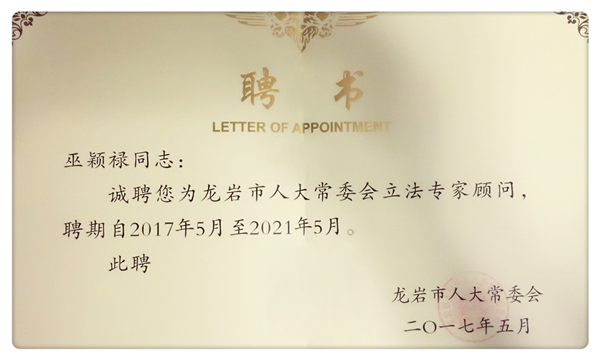 聘书
LETTER OF APPOINTMENT
巫颖禄同志：
诚聘您为龙岩市人大常委会立法专家顾问，
聘期自2017年5月至2021年5月。
此聘
龙岩市人大常委会
二〇一七年五月